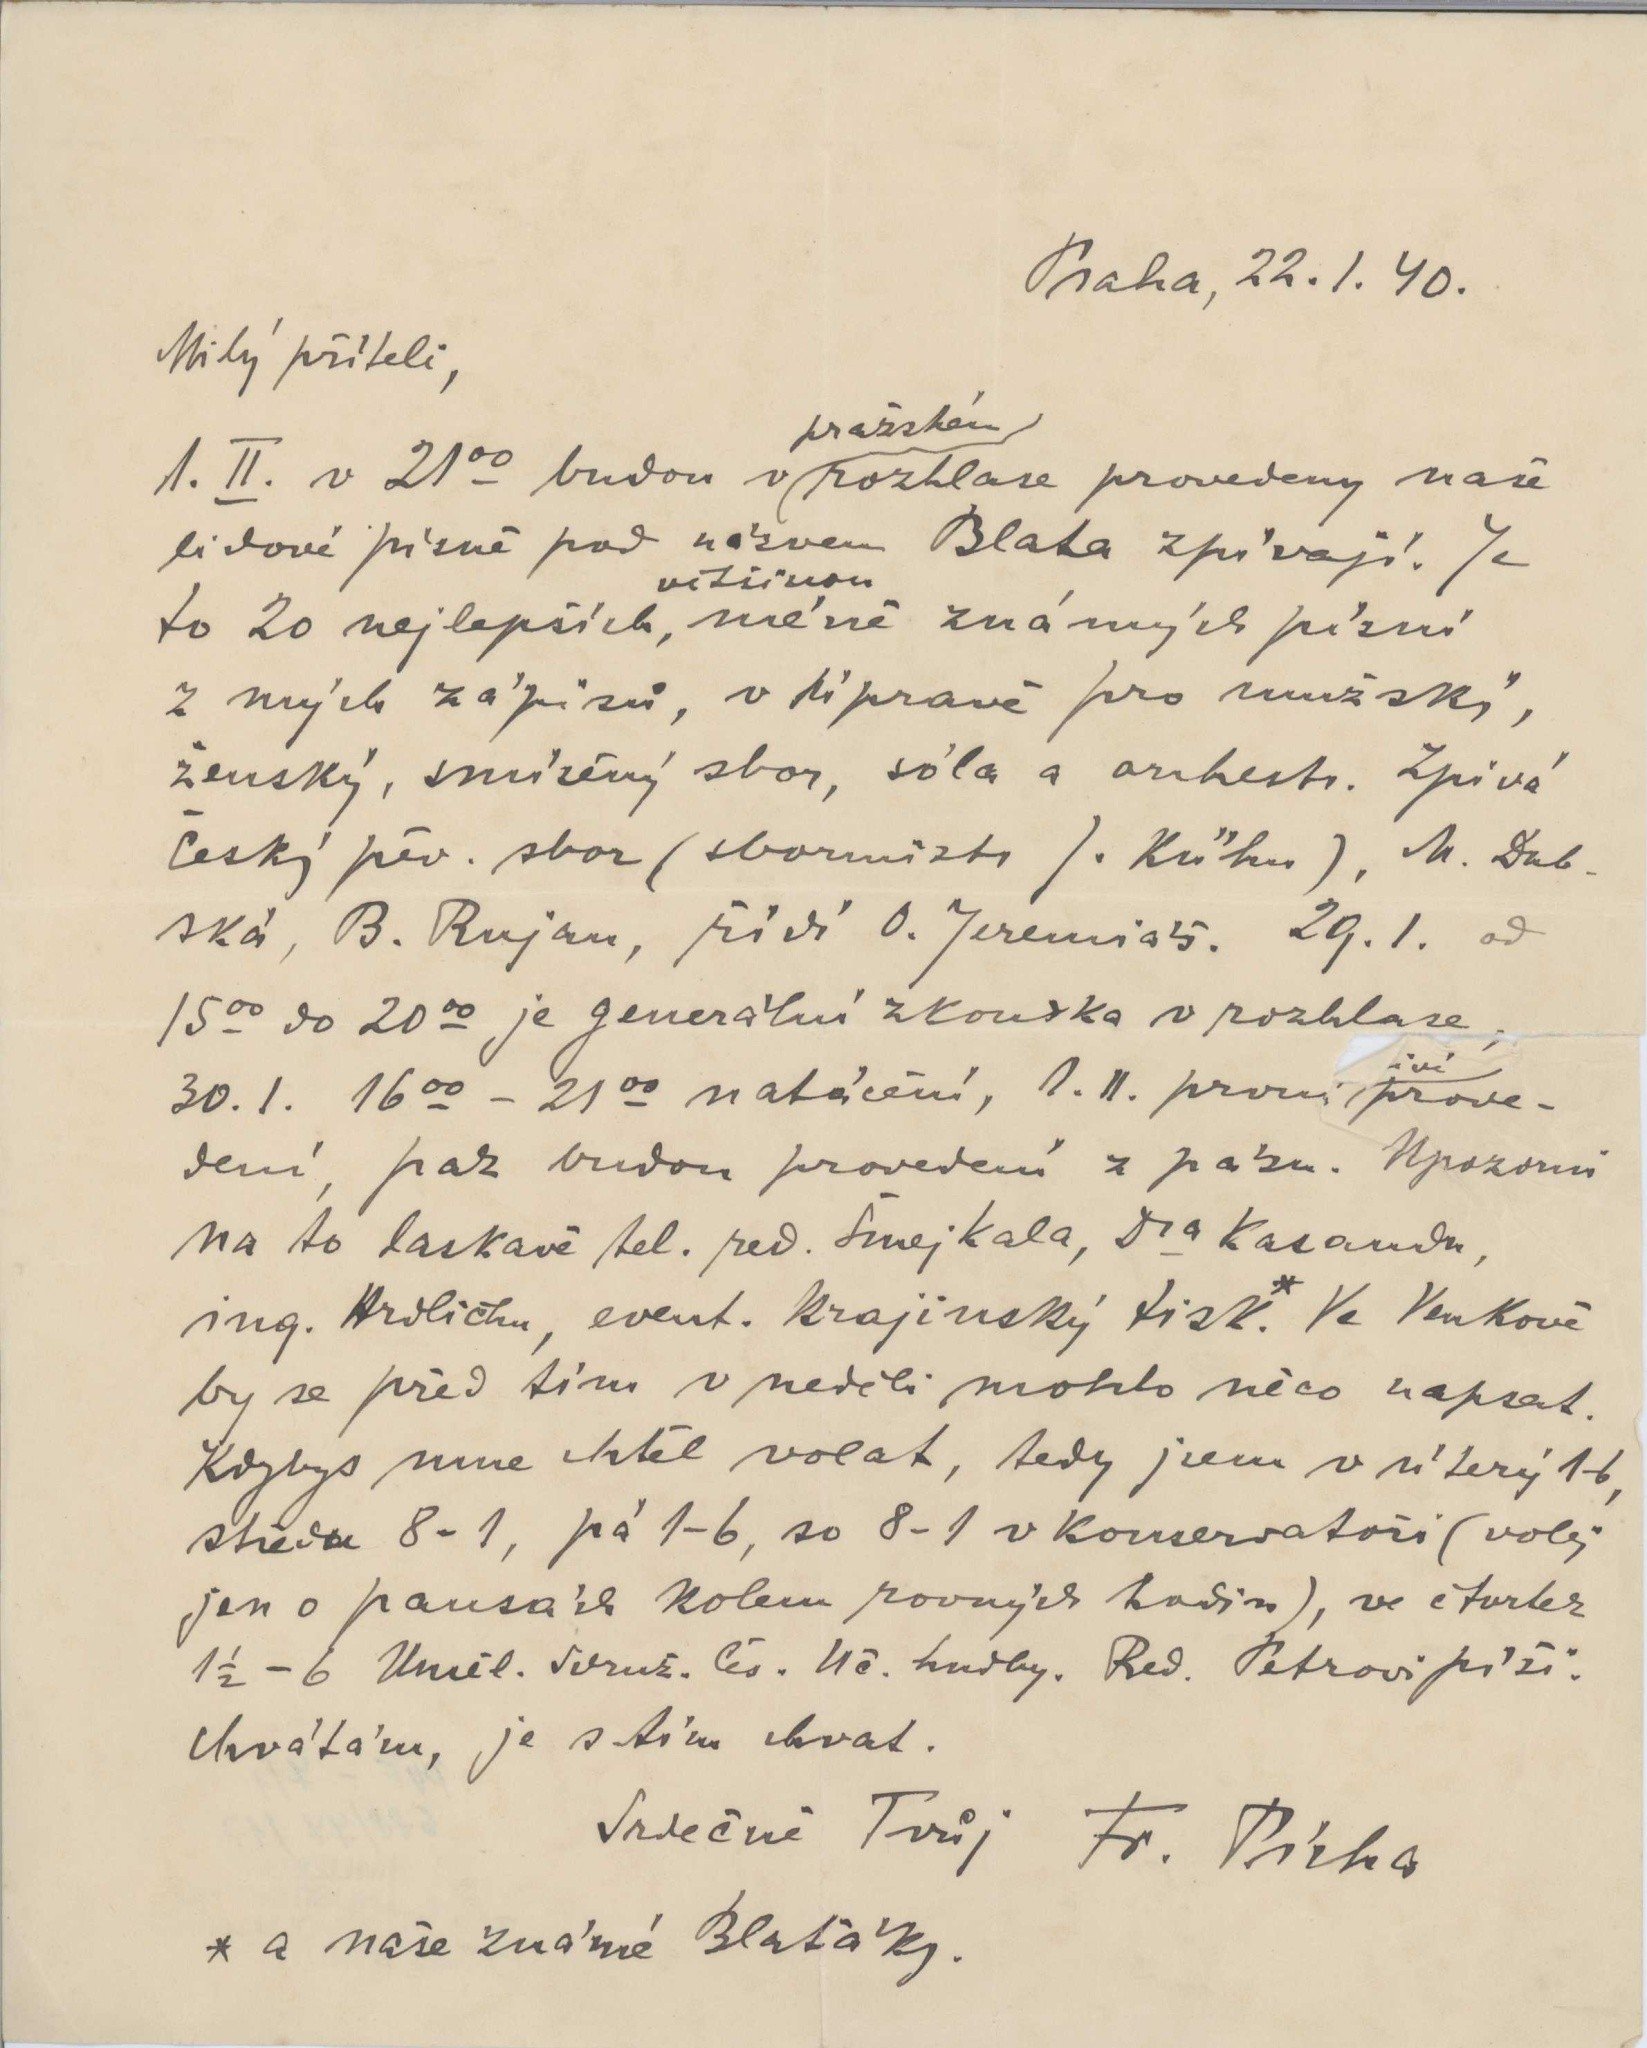 Praha, 22.1.40.
Milý příteli,
pražském
1. II. v 21⁰⁰ budou v rozhlase provedeny naše
lidové písně pod názvem Blata zpívají. Je
většinou
to 20 nejlepších, méně známých písní
z mých zápisů, v úpravě pro mužský,
ženský, smíšený sbor, sóla a orchestr. Zpívá
Český pěv. sbor (sbormistr J. Kühn), M. Dub-
ská, B. Rujan, řídí O. Jeremiáš. 29.1. od
15⁰⁰ do 20⁰⁰ je generální zkouška v rozhlase,
živé
30.1. 16⁰⁰ – 21⁰⁰ natáčení, 1.II. první prove-
dení, pak budou provedení z pásu. Upozorni
na to laskavě tel. red. Šmejkala, Dra Kasandu,
ing. Hrdličku, event. Krajinský tisk.* Ve Venkově
by se před tím v neděli mohlo něco napsat.
Kdybys mne chtěl volat, tedy jsem v úterý 1-6,
středu 8-1, pá 1-6, so 8-1 v konservatoři (volej
jen o pausách kolem rovných hodin), ve čtvrtek
1½ – 6 Uměl. sdruž. čes. uč. hudby. Red. Petrovi píši.
Chvátám, je s tím chvat.
Srdečně Tvůj Fr. Pícha
* a naše známé Blaťáky.